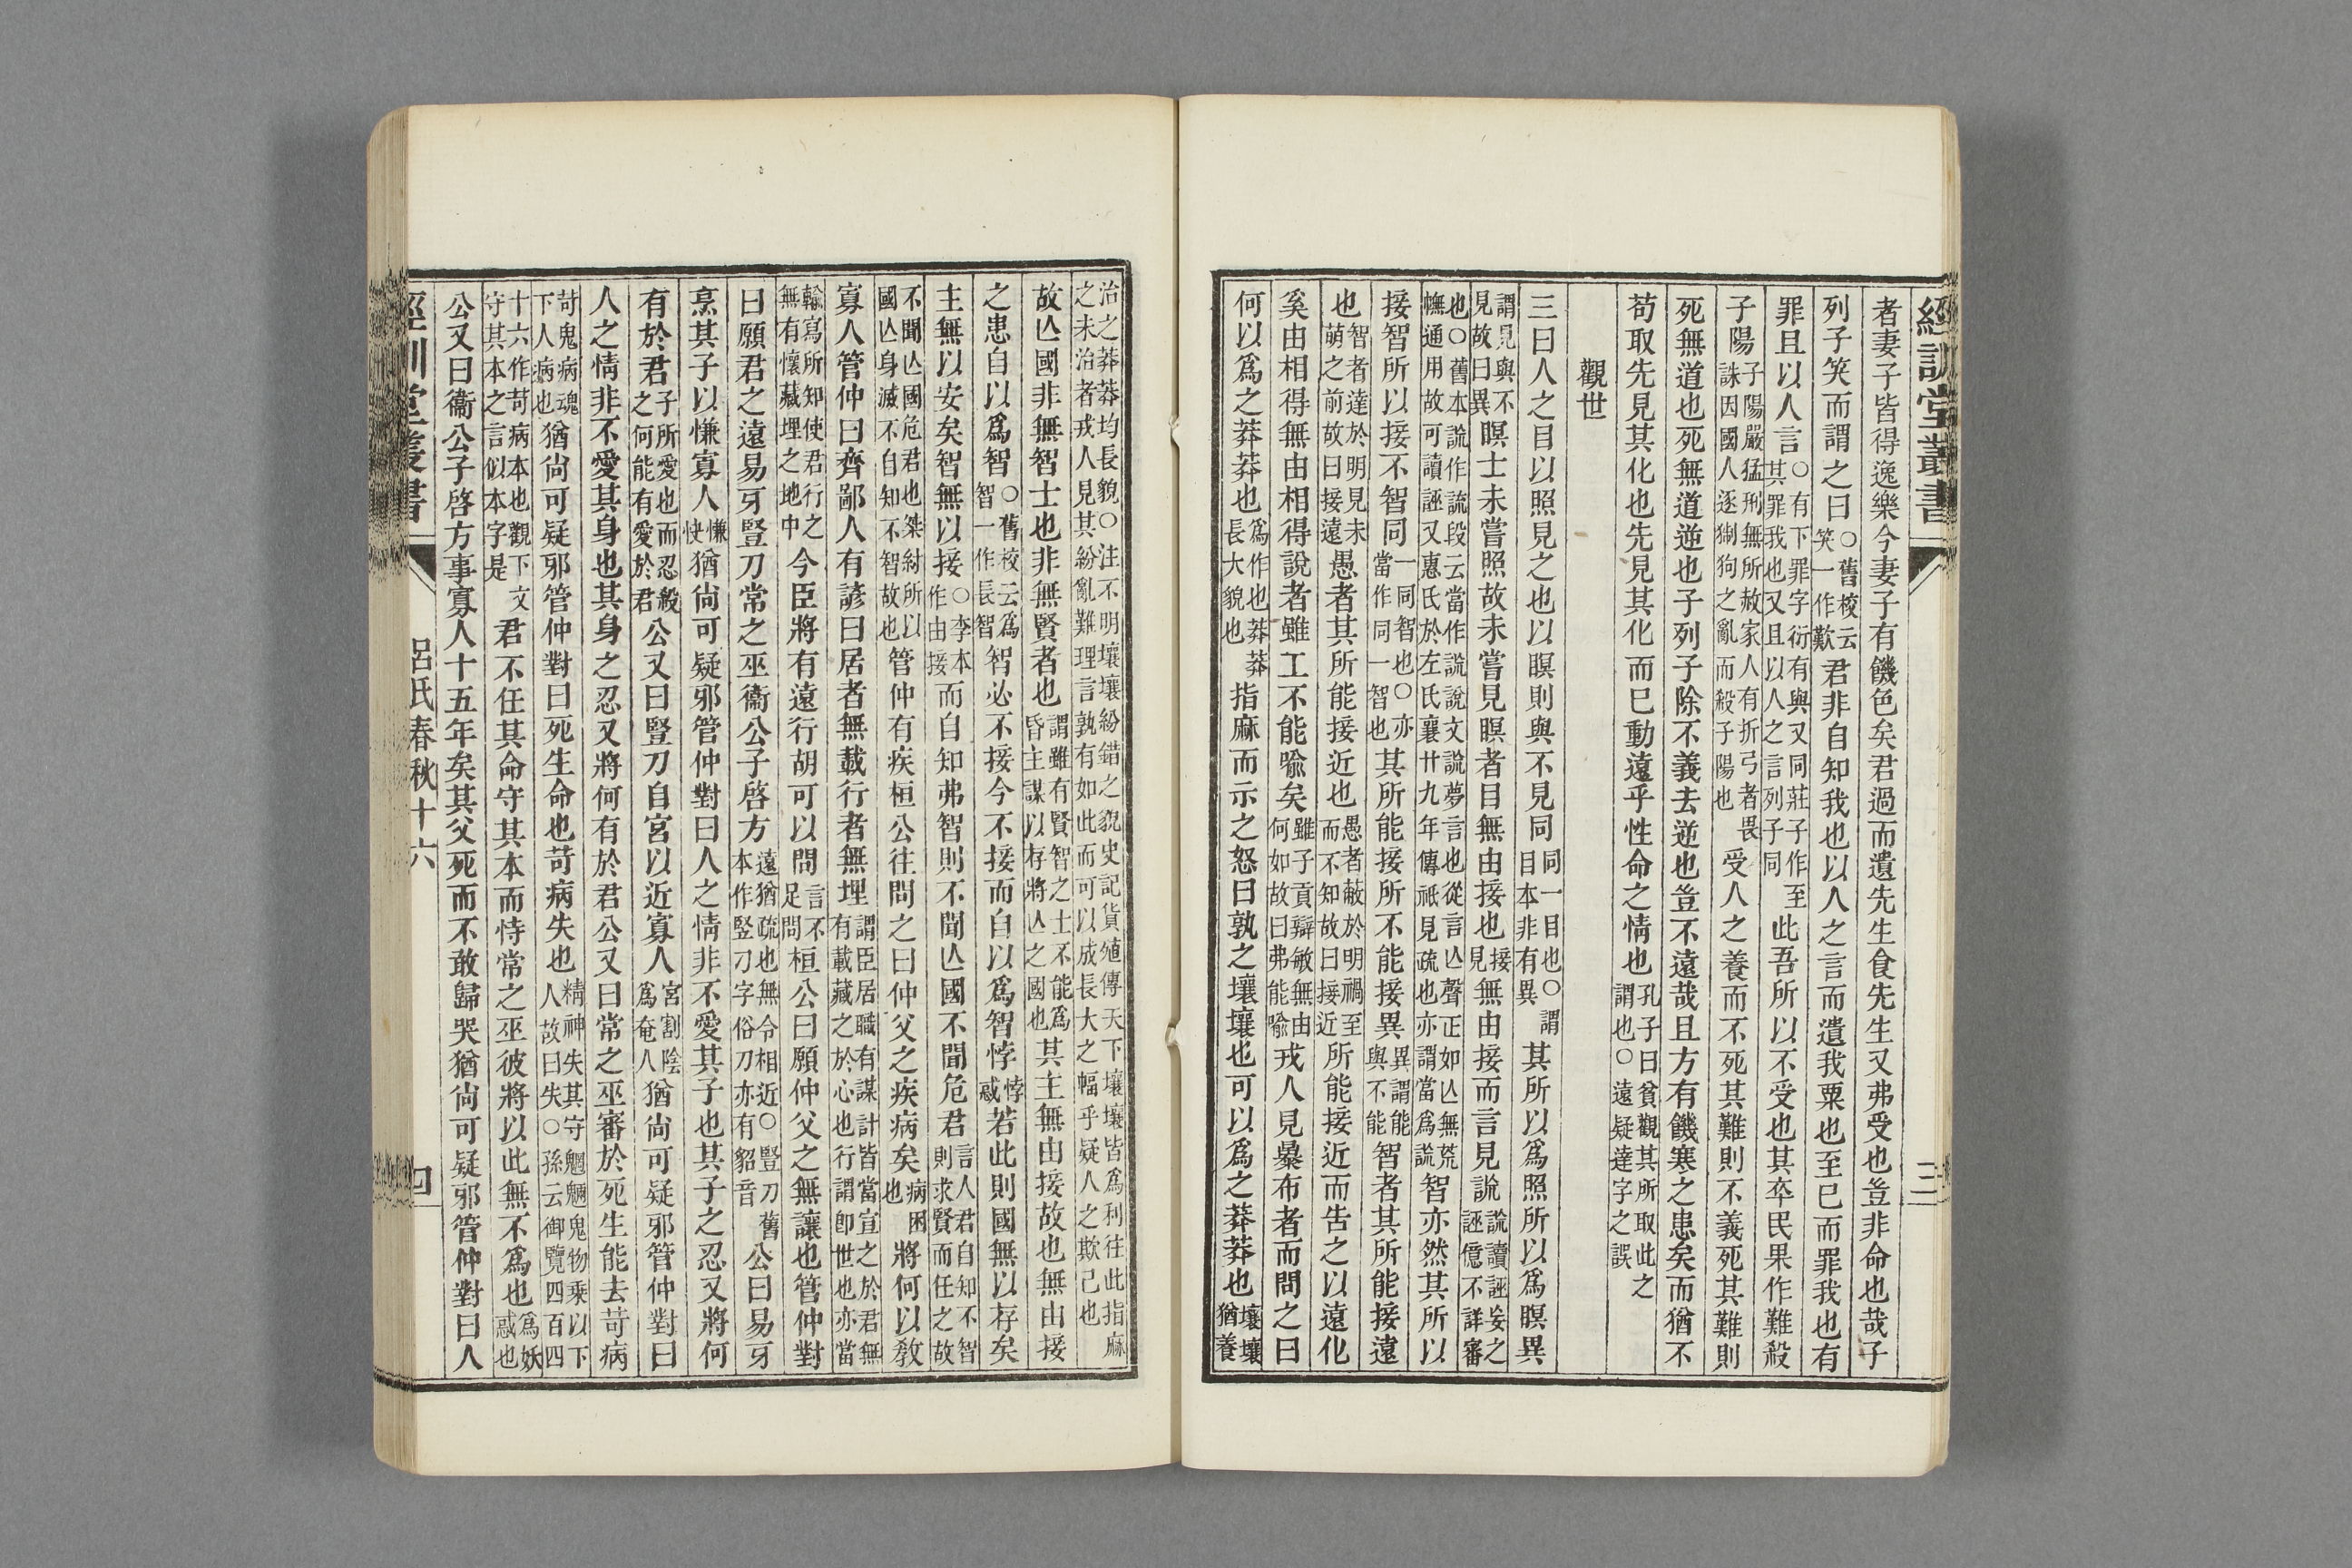 經訓堂叢書 三
者妻子皆得逸樂今妻子有饑色矣君過而遺先生食先生又弗受也豈非命也哉子
列子笑而謂之曰○舊校云笑一作歎君非自知我也以人之言而遺我粟也至已而罪我也有
罪且以人言○有下罪字衍有與又同莊子作至其罪我也又且以人之言列子同此吾所以不受也其卒民果作難殺
子陽子陽嚴猛刑無所赦家人有折弓者畏誅因國人逐猘狗之亂而殺子陽也受人之養而不死其難則不義死其難則
死無道也死無道逆也子列子除不義去逆也豈不遠哉且方有饑寒之患矣而猶不
苟取先見其化也先見其化而已動遠乎性命之情也孔子曰貧觀其所取此之謂也○遠疑達字之誤
觀世
三曰人之目以照見之也以瞑則與不見同同一目也○謂目本非有異其所以為照所以為瞑異
謂見與不見故曰異瞑士未嘗照故未嘗見瞑者目無由接也接見無由接而言見謊謊讀誣妄之誣億不詳審
也○舊本謊作䛃段云當作謊說文謊夢言也從言亾聲正如亾無荒幠通用故可讀誣又惠氏於左氏襄廿九年傳祇見疏也亦謂當為謊智亦然其所以
接智所以接不智同一同智也○亦當作同一智也其所能接所不能接異異謂能與不能智者其所能接遠
也智者達於明見未萌之前故曰接遠愚者其所能接近也愚者蔽於明禍至而不知故曰接近所能接近而告之以遠化
奚由相得無由相得說者雖工不能喻矣雖子貢辯敏無由何如故曰弗能喻戎人見暴布者而問之曰
何以為之莽莽也為作也莽莽長大貌也指麻而示之怒曰孰之壤壤也可以為之莽莽也壤壤猶養
治之莽莽均長貌○注不明壤壤紛錯之貌史記貨殖傳天下壤壤皆為利往此指麻之未治者戎人見其紛亂難理言孰有如此而可以成長大之幅乎疑人之欺己也
故亾國非無智士也非無賢者也謂雖有賢智之士不能為昏主謀以存將亾之國也其主無由接故也無由接
之患自以為智○舊校云為智一作長智智必不接今不接而自以為智悖悖惑若此則國無以存矣
主無以安矣智無以接○李本作由接而自知弗智則不聞亾國不聞危君言人君自知不智則求賢而任之故
不聞亾國危君也桀紂所以國亾身滅不自知不智故也管仲有疾桓公往問之曰仲父之疾病矣病困也將何以教
寡人管仲曰齊鄙人有諺曰居者無載行者無埋謂臣居職有謀計皆當宣之於君無有載藏之於心也行謂即世也亦當
輸寫所知使君行之無有懷藏埋之地中今臣將有遠行胡可以問言不足問桓公曰願仲父之無讓也管仲對
曰願君之遠易牙豎刀常之巫衞公子啓方遠猶疏也無令相近○豎刀舊本作竪刁字俗刀亦有貂音公曰易牙
烹其子以慊寡人慊快猶尚可疑邪管仲對曰人之情非不愛其子也其子之忍又將何
有於君子所愛也而忍殺之何能有愛於君公又曰豎刀自宮以近寡人宮割陰為奄人猶尚可疑邪管仲對曰
人之情非不愛其身也其身之忍又將何有於君公又曰常之巫審於死生能去苛病
苛鬼病魂下人病也猶尚可疑邪管仲對曰死生命也苛病失也精神失其守魍魎鬼物乘以下人故曰失○孫云御覽四百四
十六作苛病本也觀下文守其本之言似本字是君不任其命守其本而恃常之巫彼將以此無不為也為妖惑也
公又曰衞公子啓方事寡人十五年矣其父死而不敢歸哭猶尚可疑邪管仲對曰人
經訓堂叢書 呂氏春秋十六 四